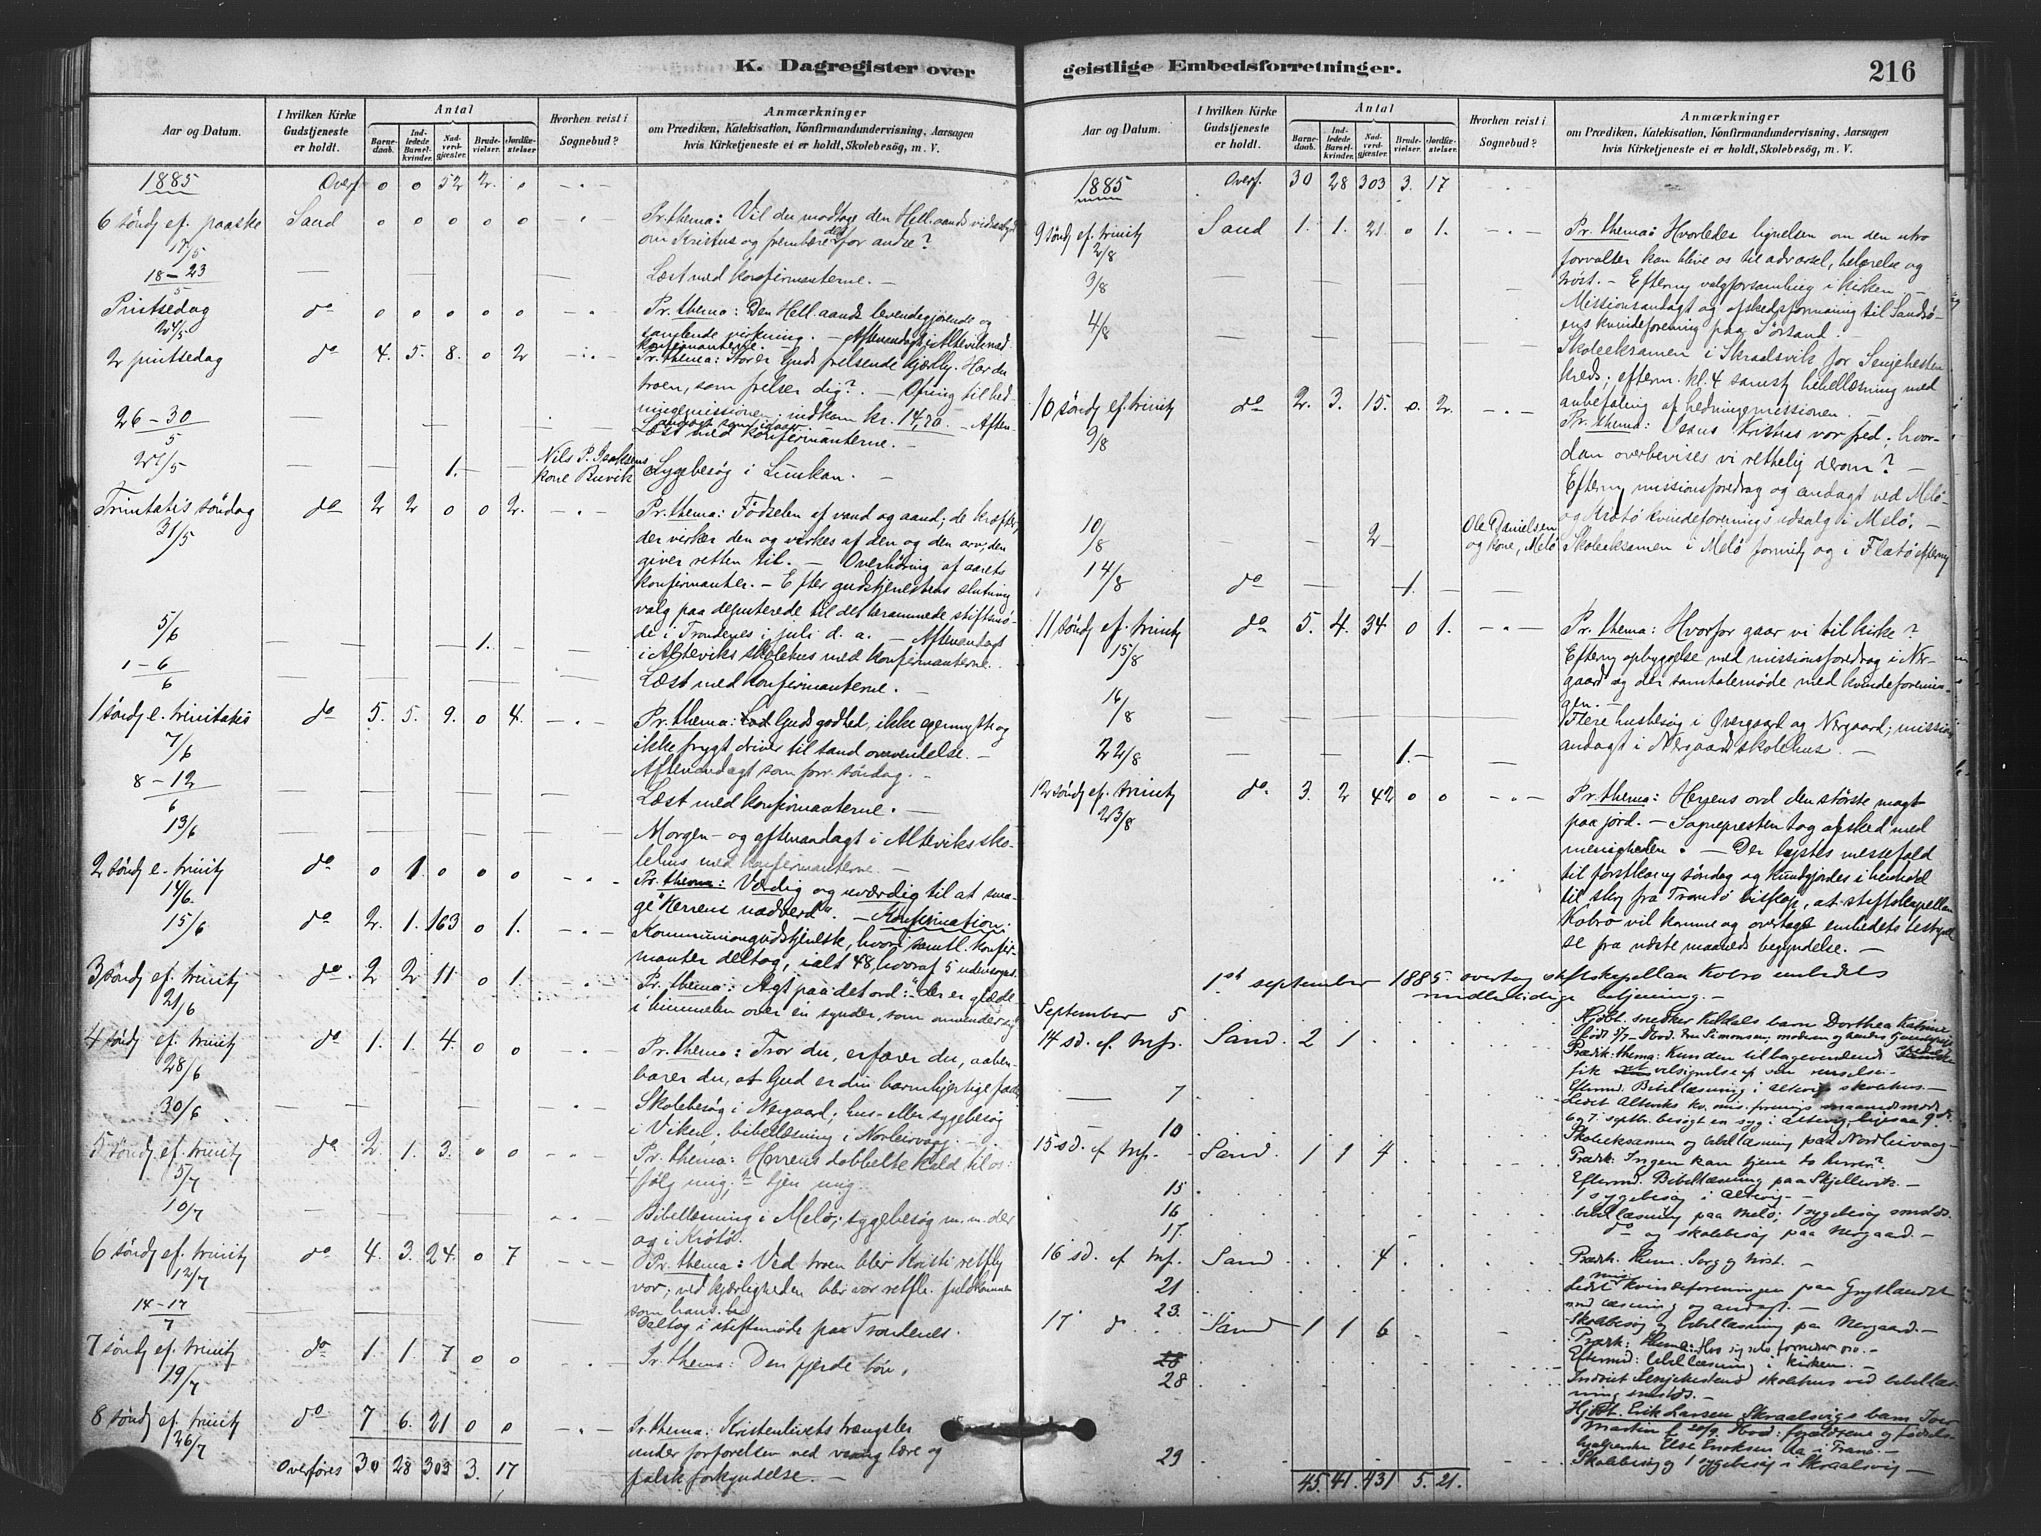 K. Dagregister over
geistlige Embedsforretninger.
216
Aar og Datum.
I hvilken Kirke Gudstjeneste er holdt.
Antal
Barnedaab.
Indledede Barselkvinder.
Nadverdgjæster.
Brudevielser.
Jordfæstelser
Hvorhen reist i Sognebud?
Anmærkninger
om Prædiken, Katekisation, Konfirmandundervisning, Aarsagen
hvis Kirketjeneste ei er holdt, Skolebesög, m. V.
1885 Overf. 0 0 52 2. 0 - " -
6 söndg ef. paaske Sand 0 0 0 0 0 Pr. thema: Vil du modtage den Hell. aands vidnesbyrd
17/5 om Kristus og frembære det for andre?
18-23/5 Læst med konfirmanterne. -
Pintsedag do 0 0 0 0 0 Pr. thema: Den Hell. aands levendegjørende og
24/5 samlende virkning. - Aftenandagt i Altevik med
konfirmanterne.
2 pintsedag do 4. 5. 8. 0 2 Pr. thema: Stor er Guds frelsende kjærlighed. Har du
troen, som frelser dig? - Ofring til hed-
ningemissionen; indkom kr. 14,70. - Aften-
andagt som igaar.
26-30/5 Læst med konfirmanterne. -
27/5 1. Nils P. Isaksens Sygebesøg i Linnkan. -
kone Buvik
Trinitatis söndag do 2 2 0 0 2. Pr. thema: Fødselen af vand og aand; de kræfter
31/5 der virker den og virkes af den og den arv, den
giver retten til. - Overhøring af aarets
konfirmanter. - Efter gudstjenestens slutning
valg paa deputerede til det berammede stiftsmö-
5/6 1. de i Trondenes i juli d. a. - Aftenandagt
i Alteviks skolehus med konfirmanterne.
1-6/6 Læst med konfirmanterne. -
1 söndg e. trinitatis do 5. 5. 9. 0 4. Pr. thema: Guds godhed, ikke egennytte og
7/6 ikke frygt driver til sand omvendelse. -
Aftenandagt som forr. söndag. -
8-12/6 Læst med konfirmanterne. -
13/6 Morgen- og aftenandagt i Alteviks sko-
lehus med konfirmanterne. -
2 söndg e. trinity do 0 1 0 0 0 Pr. thema: Værdig og uværdig til at sma-
14/6. ge Herrens nadverd. - Konfirmation:
15/6 do 2. 1. 163 0 1. Kommuniongudstjeneste, hvori samtl. konfir-
manter deltog, ialt 48, hvoraf 5 udensogns.
3 söndg ef. trinity do 2 2 11 0 1 Pr. thema: Agt paa det ord: der er glæde
21/6 i himmelen over en synder, som omvender sig
4 söndg ef. trinity do 1. 1. 4. 0 0 Pr. thema: Tror du, erfarer du, aaben-
28/6 barer du, at Gud er din barmhjertige fader
30/6 Skolebesøg i Nergaard; hus- eller sygebesøg
i Viken; bibellæsning i Norleirvaag. -
5 söndg ef. trinity do 2. 1. 3. 0 0 Pr. thema: Herrens dobbelte kald til os:
5/7 følg mig, tjen mig.
10/7 Bibellæsning i Melø; sygebesøg m. m. der
og i Krötö.
6 söndg ef. trinity do 4. 3. 24. 0 7 Pr. thema: Ved troen blir Kristi retfly
12/7 vor; ved kjærligheden blir vor retfl. fuldkommen
som hans.
14-17/7 Deltog i stiftsmöde paa Trondenes.
7 söndg ef. trinity do 1. 1. 7 0 0 Pr. thema: Den fjerde bön.
19/7
8 söndg ef. trinity do 7 6. 21 0 0 Pr. thema: Kristenlivets trængsler
26/7 under forførelsen ved vrang lære og
overføres 30 28 303 3. 17 falsk forkyndelse. -
Aar og Datum.
I hvilken Kirke Gudstjeneste er holdt.
Antal
Barnedaab.
Indledede Barselkvinder.
Nadverdgjæster.
Brudevielser.
Jordfæstelser
Hvorhen reist i Sognebud?
Anmærkninger
om Prædiken, Katekisation, Konfirmandundervisning, Aarsagen
hvis Kirketjeneste ei er holdt, Skolebesög, m. V.
1885 Overf. 30 28 303 3. 17
9 söndg ef. trinity Sand 1. 1. 21. 0 1. Pr. thema: Hvorledes lignelsen om den utro
2/8 forvalter kan blive os til advarsel, belærelse og
trøst. - Efterm. valgforsamling i kirken. -
3/8 Missionsandagt og afskedsformaning til Sandsö-
ens kvindeforening paa Sörsand. -
4/8 Skoleeksamen i Skraalsvik for Senjehesten
kreds; efterm. kl. 4 samst. bibellæsning med
anbefaling af hedningemissionen. -
10 söndg ef. trinity do 2. 3. 15. 0. 2. Pr. thema: Jesus Kristus vor fred; hvor-
9/8 dan overbevises vi rettelig derom? -
Efterm. missionsforedrag og andagt ved Melö-
og Krötö kvindeforenings udsalg i Melö. -
10/8 2 Ole Danielsen Skoleeksamen i Melö formity og i Flatö efterm
og kone, Melö
14/8 do 1.
11 söndg ef. trinity do 5. 4. 34 0 1. Pr. thema: Hvorfor gaar vi til kirke?
15/8 Efterm. opbyggelse med missionsforedrag i Ner-
gaard og der samtalemøde med kvindeforenin-
gen. -
16/8 Flere husbesøg i Øvergaard og Nergaard; missions
andagt i Nergaard skolehus. -
22/8 1.-
12 söndg ef. trinity do 3. 2 42 0 0 Pr. thema: Herrens ord den største magt
23/8 paa jord. - Sognepresten tog afsked med
menigheden. - Der lystes messefald
til förstkom. söndag og kundgjordes i henhold
til skr. fra Tromsö biskop, at stiftskapellan
Kobro vil komme og overtage embedets bestyrel
se fra næste maaneds begyndelse. -
1st september 1885 overtog stiftskapellan Kobro embedets
midlertidige betjening. -
September 5 Hjdbt. snedker Kildals barn Dorthea Katrine
14 sd. ef. trfs. Sand. 2 1 Prædik: thema: Kun den tilbagevendende
fik velsignelse af sin renselse.
Efterm. Bibellæsning i Altevig skolehus. -
7 Ledet Alteviks kv. mis. forenings maanedsmöde.
10 Skoleeksamen og bibellæsning paa Nordleirvaag -
15 sd. ef. trfs. Sand. 1 1 4 Præk: Ingen kan tjene to herrer?
Efterm. Bibellæsning paa Skjellevik. -
15 1 sygebesøg i Altevig. -
16 bibellæsning paa Melö; 1 sygebesøg smsts.
17. do og skolebesøg paa Nergaard. -
16 sd. ef. trfs. Sand 4 Præk. them. Sorg og trøst. -
21 Ledet kvindeforeningen paa Grytlandet
med læsning og andagt. -
23. Skolebesøg og bibellæsning paa Nergaard. -
17 do Sand 1 1 6 Præk: thema: Hvo sig selv fornedrer osv. -
Efterm: bibellæsning i kirken. -
28
28 Indviet Senjehestens skolehus ved bibellæs-
ning smsts. -
Hjdbt. Erik Larsen Skraalsvigs barn
29 Skolebesøg og 1 sygebesøg i Skraalsvig -
45. 41. 431 5. 21.